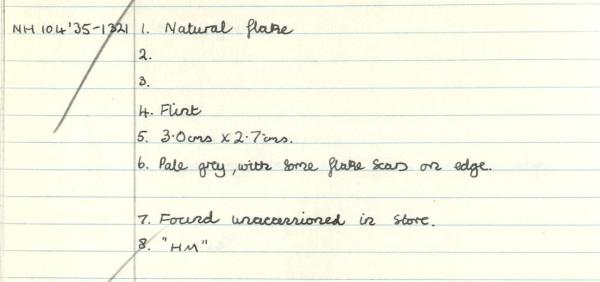 NH 104'35-1321 1. Natural flake
2.
3.
4. Flint
5. 3.0cms x 2.7cms.
6. Pale grey, with some flake scars on edge.
7. Found unaccessioned in store.
8. "HM"